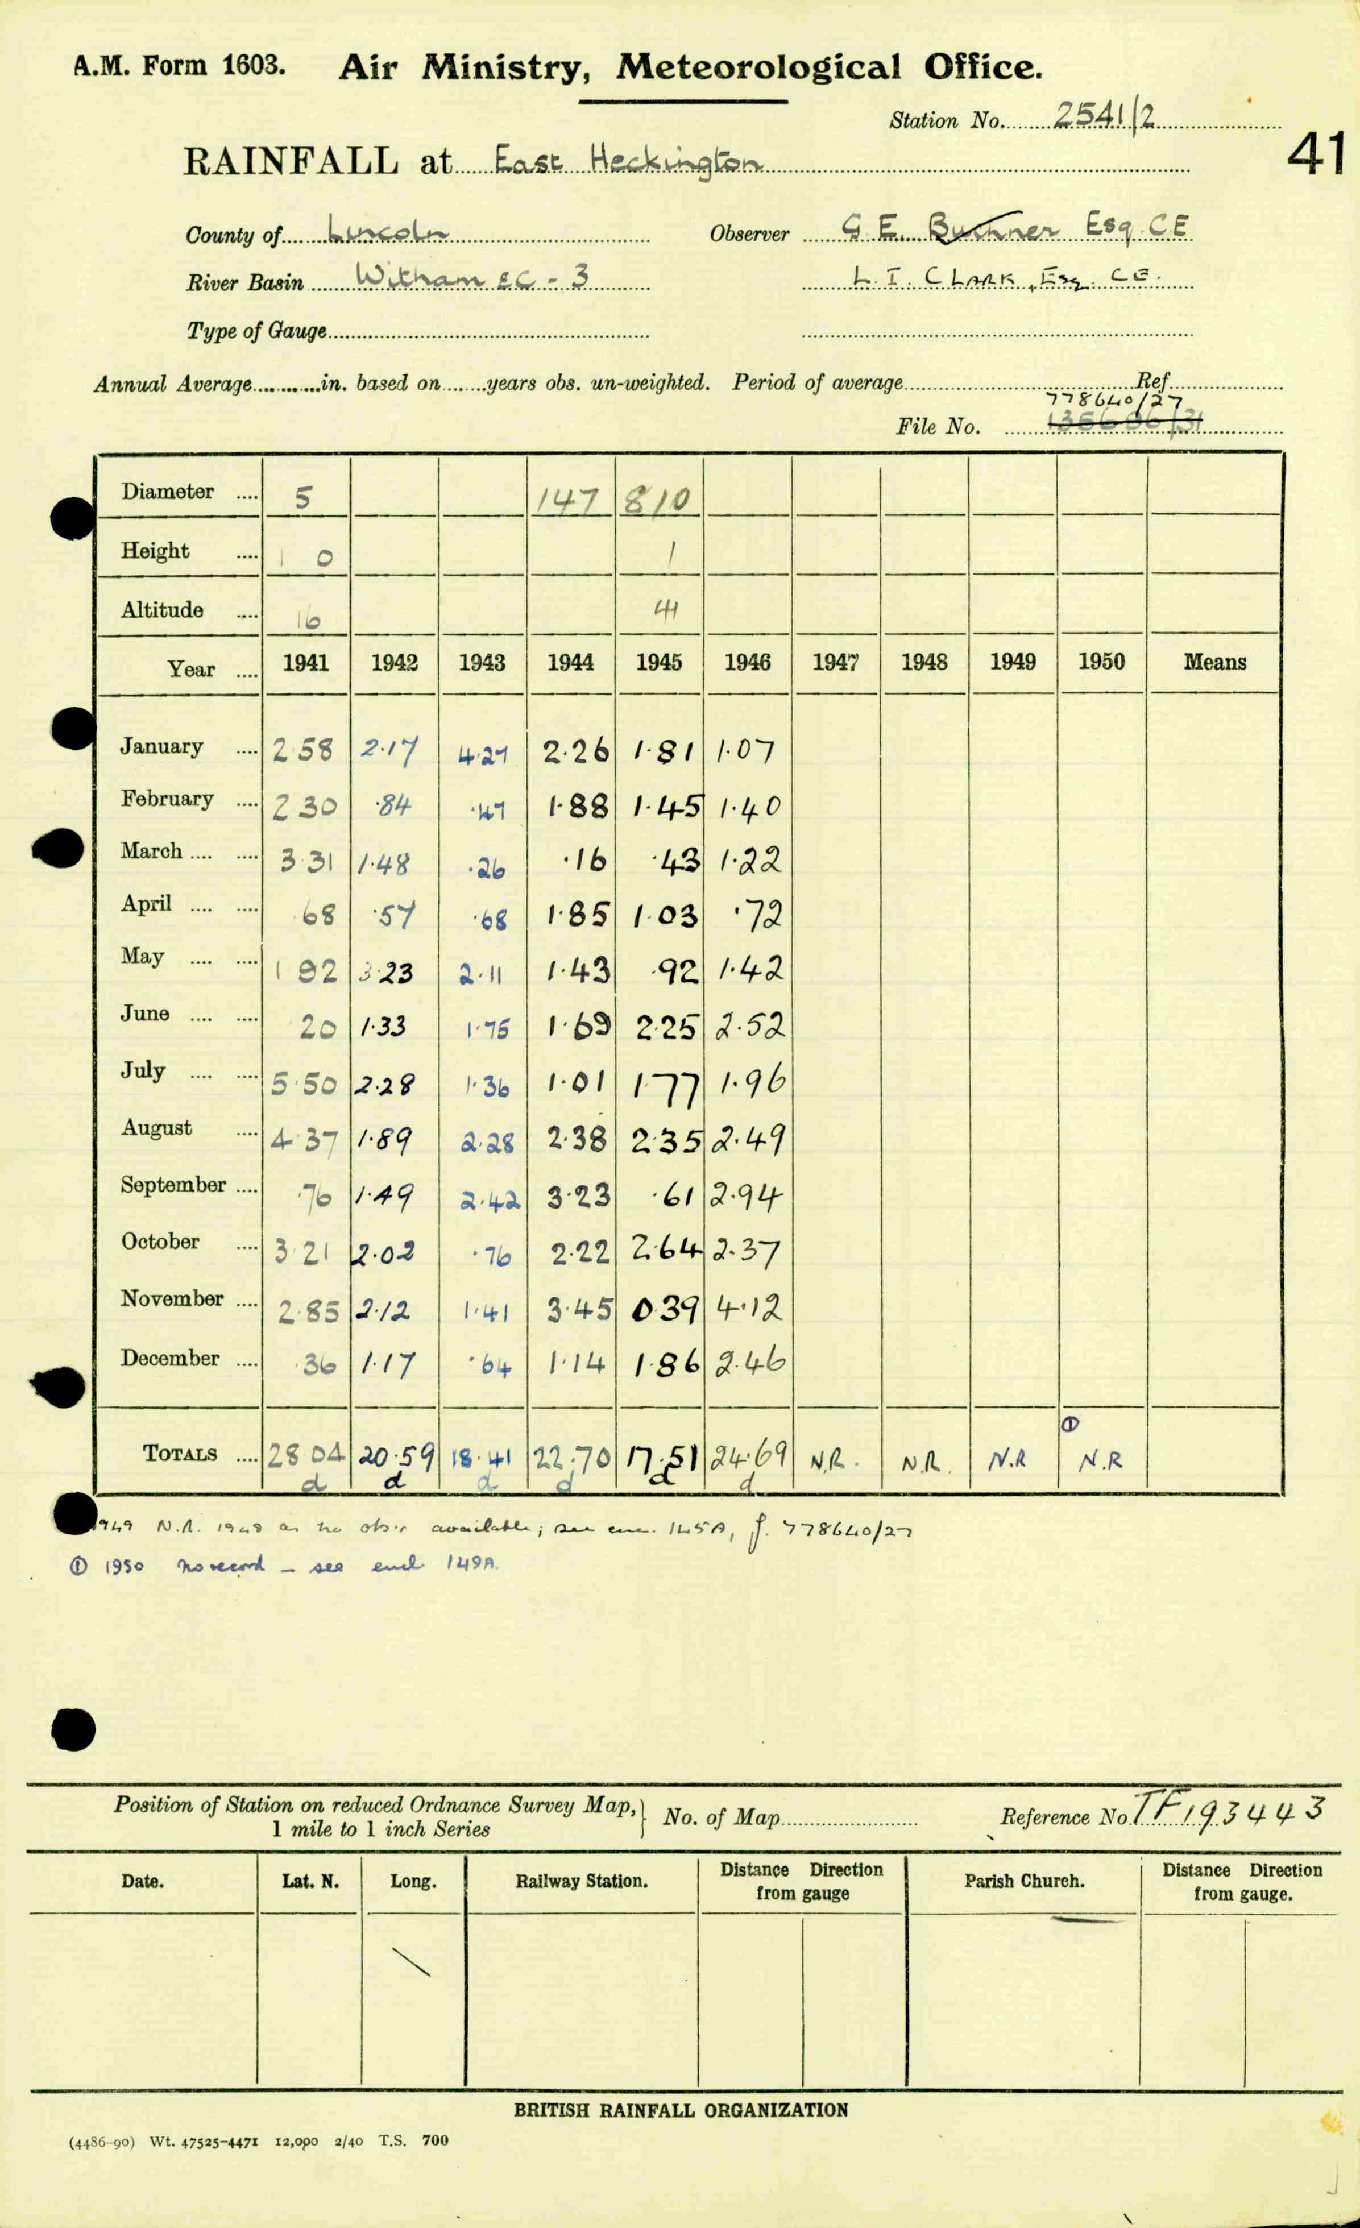 A.M. Form 1603. Air Ministry, Meteorological Office.
Station No. 2541/2
41
RAINFALL at East Heckington
County of Lincoln Observer G. E. Buchner Esq. CE
River Basin Witham EC - 3 L. I. CLARK, Esq. CE.
Type of Gauge
Annual Average in. based on years obs. un-weighted. Period of average Ref
778640/27
File No.
Diameter .... 5 147 810
Height .... 1 0 1
Altitude .... 16
Year .... 1941 1942 1943 1944 1945 1946 1947 1948 1949 1950 Means
January .... 2.58 2.17 4.27 2.26 1.81 1.07
February .... 2.30 .84 .47 1.88 1.45 1.40
March .... .... 3.31 1.48 .26 .16 .43 1.22
April .... .... 68 .57 .68 1.85 1.03 .72
May .... .... 1 92 3.23 2.11 1.43 .92 1.42
June .... .... 20 1.33 1.75 1.69 2.25 2.52
July .... .... 5.50 2.28 1.36 1.01 1.77 1.96
August .... 4.37 1.89 2.28 2.38 2.35 2.49
September .... .76 1.49 2.42 3.23 .61 2.94
October .... 3.21 2.02 .76 2.22 2.64 2.37
November .... 2.85 2.12 1.41 3.45 0.39 4.12
December .... .36 1.17 .64 1.14 1.86 2.46
①
TOTALS .... 28 04 20.59 18.41 22.70 17.51 24.69 N.R. N.R. N.R N.R
d d d d d d
1949 N.R. 1948 as no obsns available; see enc. 145A, f. 778640/27
① 1950 no record - see encl. 149A.
Position of Station on reduced Ordnance Survey Map, No. of Map Reference No. TF193443
1 mile to 1 inch Series
Date. Lat. N. Long. Railway Station. Distance from gauge Direction Parish Church. Distance from gauge. Direction
BRITISH RAINFALL ORGANIZATION
(4486-90) Wt. 47525-4471 12,000 2/40 T.S. 700